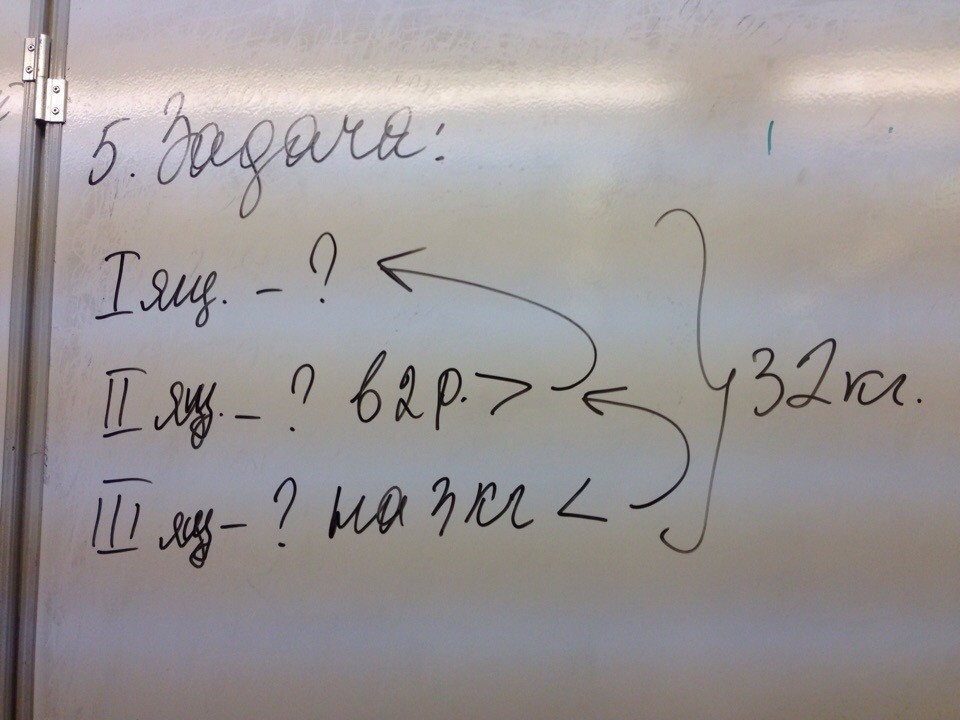 5. Задача:
I ящ. – ?
II ящ. – ? в 2 р. >
32 кг.
III ящ – ? на 3 кг <